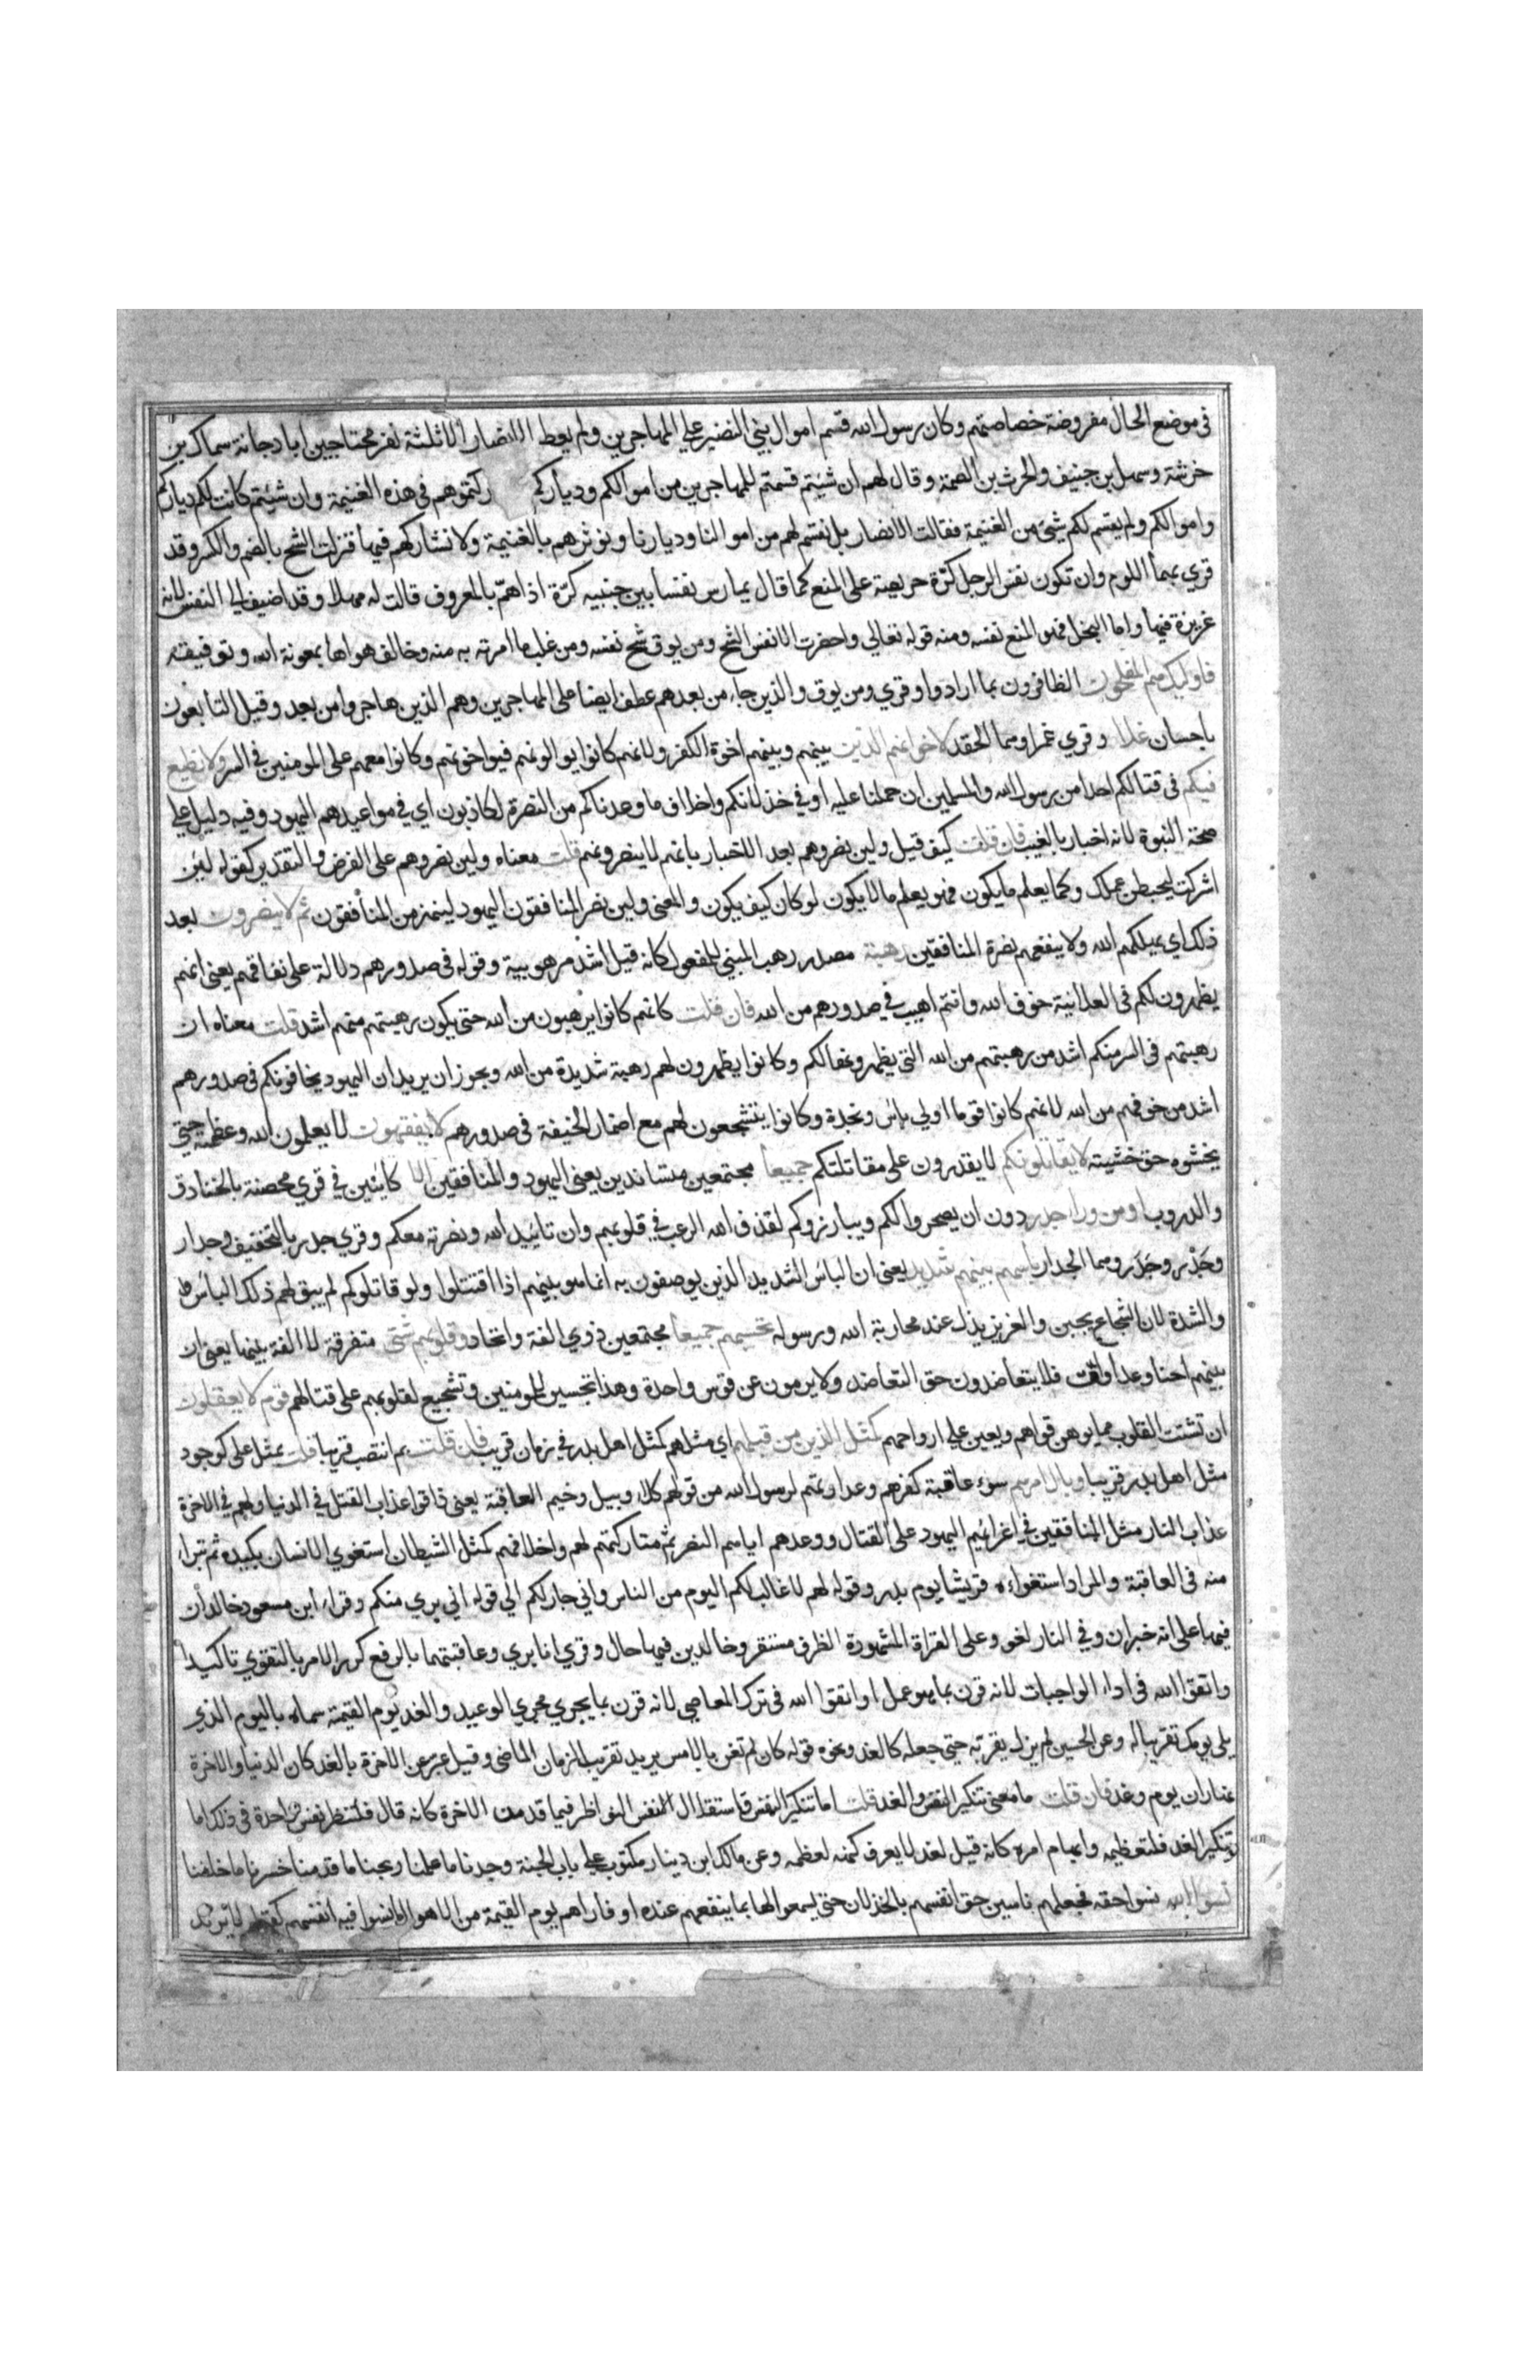 في موضع الحال مفروضة خصاصتهم وكان رسول الله قسم اموال بني النضير علي المهاجرين ولم يعط الانصار الا ثلثة نفر محتاجين ابا دجانة سماك بن
خرشة وسهل بن حنيف والحرث بن الصمة وقال لهم ان شيتم قسمتم للمهاجرين من اموالكم ودياركم ركتموهم في هذه الغنيمة وان شيتم كانت لكم دياركم
واموالكم ولم يقسم لكم شي من الغنيمة فقالت الانصار بل نقسم لهم من اموالنا وديارنا ونوثرهم بالغنيمة ولا نشاركهم فيها فنزلت الشح بالضم والكسر وقد
قري بهما اللوم وان تكون نفس الرجل كزة حريصة على المنع كما قال يمارس نفسا بين جنبيه كزة اذا هم بالمعروف قالت له مهلا وقد اضيف الى النفس لانه
غريزة فيها واما البخل فهو المنع نفسه ومنه قوله تعالي واحضرت الانفس الشح ومن يوق شح نفسه ومن غلب ما امرته به منه وخالف هواها بمعونة الله وتوفيقه
فاوليك هم المفلحون الظافرون بما ارادوا وقري ومن يوق والذين جاء من بعدهم عطف ايضا على المهاجرين وهم الذين هاجروا من بعد وقيل التابعون
باحسان غلا وقري غمرا وهما الحقد لاخوانهم الذين بينهم وبينهم اخوة الكفر ولانهم كانوا يوالونهم فيواخونهم وكانوا معهم على المومنين في السر ولا نطيع
فيكم في قتالكم احدا من رسول الله والمسلمين ان حملنا عليه او في خذلانكم واخلاف ما وعدناكم من النصرة لكاذبون اي في مواعيدهم اليهود وفيه دليل علي
صحة النبوة لانه اخبار بالغيب فان قلت كيف قيل ولين نصروهم بعد الاخبار بانهم لا ينصرونهم قلت معناه ولين نصروهم على الفرض والتقدير كقوله لين
اشركت ليحبطن عملك وكما يعلم ما يكون فهو يعلم ما لا يكون لو كان كيف يكون والمعنى ولين نصر المنافقون اليهود لينهزمن المنافقون ثم لا ينصرون بعد
ذلك اي يهلكهم الله ولا ينفعهم نصرة المنافقين رهبة مصدر رهب المبني للمفعول كانه قيل اشد مرهوبية وقوله في صدورهم دلالة على نفاقهم يعني انهم
يظهرون لكم في العلانية خوف الله وانتم اهيب في صدورهم من الله فان قلت كانهم كانوا يرهبون من الله حتى يكون رهبتهم منهم اشد قلت معناه ان
رهبتهم في السر منكم اشد من رهبتهم من الله التي يظهرونها لكم وكانوا يظهرون لهم رهبة شديدة من الله ويجوز ان يريد ان اليهود يخافونكم في صدورهم
اشد من خوفهم من الله لانهم كانوا قوما اولي باس ونجدة وكانوا يتشجعون لهم مع اضمار الخيفة في صدورهم لا يفقهون لا يعلمون الله وعظمته حتي
يخشوه حق خشيته لا يقاتلونكم لا يقدرون على مقاتلتكم جميعا مجتمعين متساندين يعني اليهود والمنافقين الا كاينين في قري محصنة بالخنادق
والدروب او من وراء جدر دون ان يصحروا لكم ويبارزوكم لقذف الله الرعب في قلوبهم وان تاييد الله ونصرته معكم وقري جدر بالتخفيف وجدار
وجدر وجدر وهما الجدار باسهم بينهم شديد يعني ان الباس الشديد الذين يوصفون به انما هو بينهم اذا اقتتلوا ولو قاتلوكم لم يبق لهم ذلك الباس
والشدة لان الشجاع يجبن والعزيز يذل عند محاربة الله ورسوله تحسبهم جميعا مجتمعين ذوي الفة واتحاد وقلوبهم شتى متفرقة لا الفة بينها يعني ان
بينهم احنا وعداوات فلا يتعاضدون حق التعاضد ولا يرمون عن قوس واحدة وهذا تجسير للمومنين وتشجيع لقلوبهم على قتالهم قوم لا يعقلون
ان تشتت القلوب مما يوهن قواهم ويعين علي ارواحهم كمثل الذين من قبلهم اي مثلهم كمثل اهل بدر في زمان قريب فان قلت بم انتصب قريبا قلت بمثل على كوجود
مثل اهل بدر قريبا وبال امرهم سوء عاقبة كفرهم وعداوتهم لرسول الله من قولهم كلاء وبيل وخيم العاقبة يعني ذاقوا عذاب القتل في الدنيا ولهم في الاخرة
عذاب النار مثل المنافقين في اغرائهم اليهود على القتال ووعدهم اياهم النصر ثم متاركتهم لهم واخلافهم كمثل الشيطان استغوي الانسان بكيده ثم تبرا
منه في العاقبة والمراد استغواءه قريشا يوم بدر وقوله لهم لا غالب لكم اليوم من الناس واني جار لكم الي قوله اني بري منكم وقراء ابن مسعود خالدان
فيها على انه خبر ان وفي النار لغو وعلى القراة المشهورة الظرف مستقر وخالدين فيها حال وقري انا بري وعاقبتهما بالرفع كرر الامر بالتقوي تاكيدا
واتقوا الله في اداء الواجبات لانه قرن بما هو عمل او اتقوا الله في ترك المعاصي لانه قرن بما يجري مجري الوعيد والغد يوم القيمة سماه باليوم الذي
يلي يومك تقريبا له وعن الحسين لم يزل يقربه حتي جعله كالغد ونحوه قوله كان لم تغن بالامس يريد تقريب الزمان الماضي وقيل عبر عن الاخرة بالغد كان الدنيا والاخرة
نهاران يوم وغد فان قلت ما معنى تنكير النفس والغد قلت اما تنكير النفس فاستقلال الانفس النواظر فيما قدمن الاخرة كانه قال فلتنظر نفس واحدة في ذلك اما
وتنكير الغد فلتعظيمه وابهام امره كانه قيل لغد لا يعرف كنهه لعظمه وعن مالك ابن دينار مكتوب علي باب الجنة وجدنا ما عملنا ربحنا ما قدمنا خسرنا ما خلفنا
نسوا الله نسوا حقه فجعلهم ناسين حق انفسهم بالخذلان حتى لم يسعوا لها بما ينفعهم عنده او فاراهم يوم القيمة من الاهوال ما نسوا فيه انفسهم كقوله لا يرتد